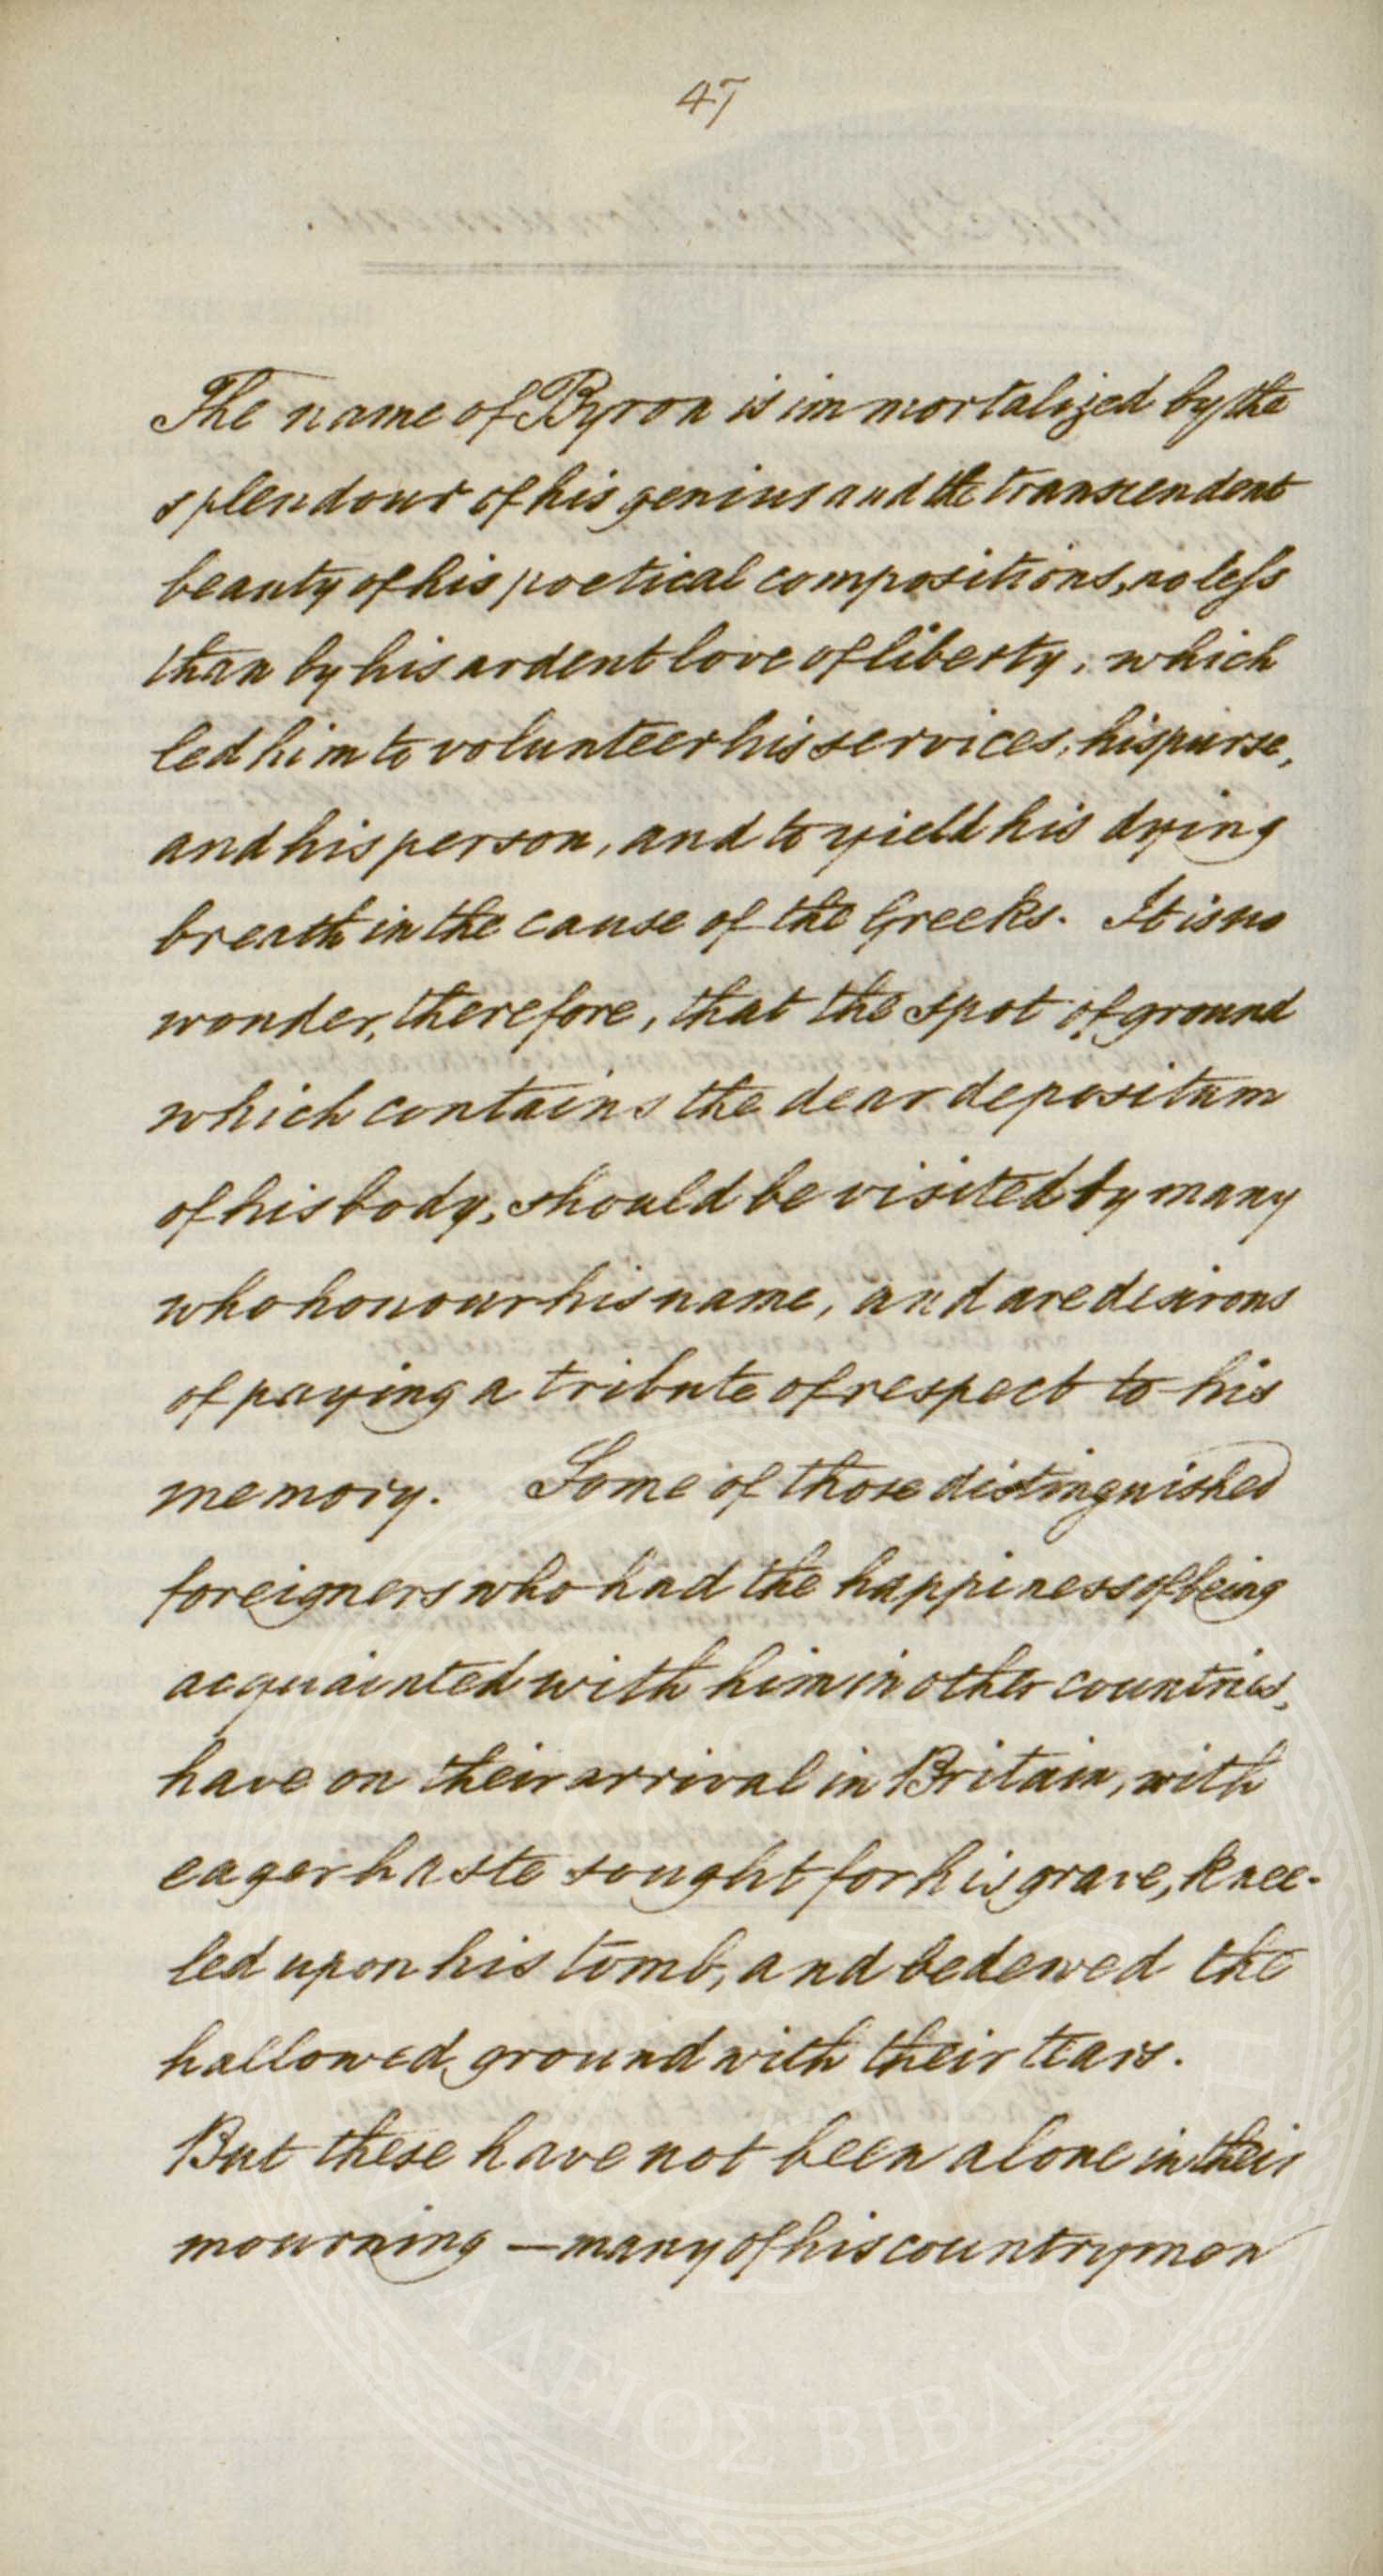 47
The name of Byron is immortalized by the
splendour of his genius and the transcendent
beauty of his poetical compositions, no less
than by his ardent love of liberty, which
led him to volunteer his services, his purse,
and his person, and to yield his dying
breath in the cause of the Greeks. It is no
wonder, therefore, that the spot of ground
which contains the dear depositum
of his body, should be visited by many
who honour his name, and are desirous
of paying a tribute of respect to his
memory. Some of those distinguished
foreigners who had the happiness of being
acquainted with him in other countries,
have on their arrival in Britain, with
eager haste sought for his grave, knee-
led upon his tomb, and bedewed the
hallowed ground with their tears.
But these have not been alone in their
mourning — many of his countrymen